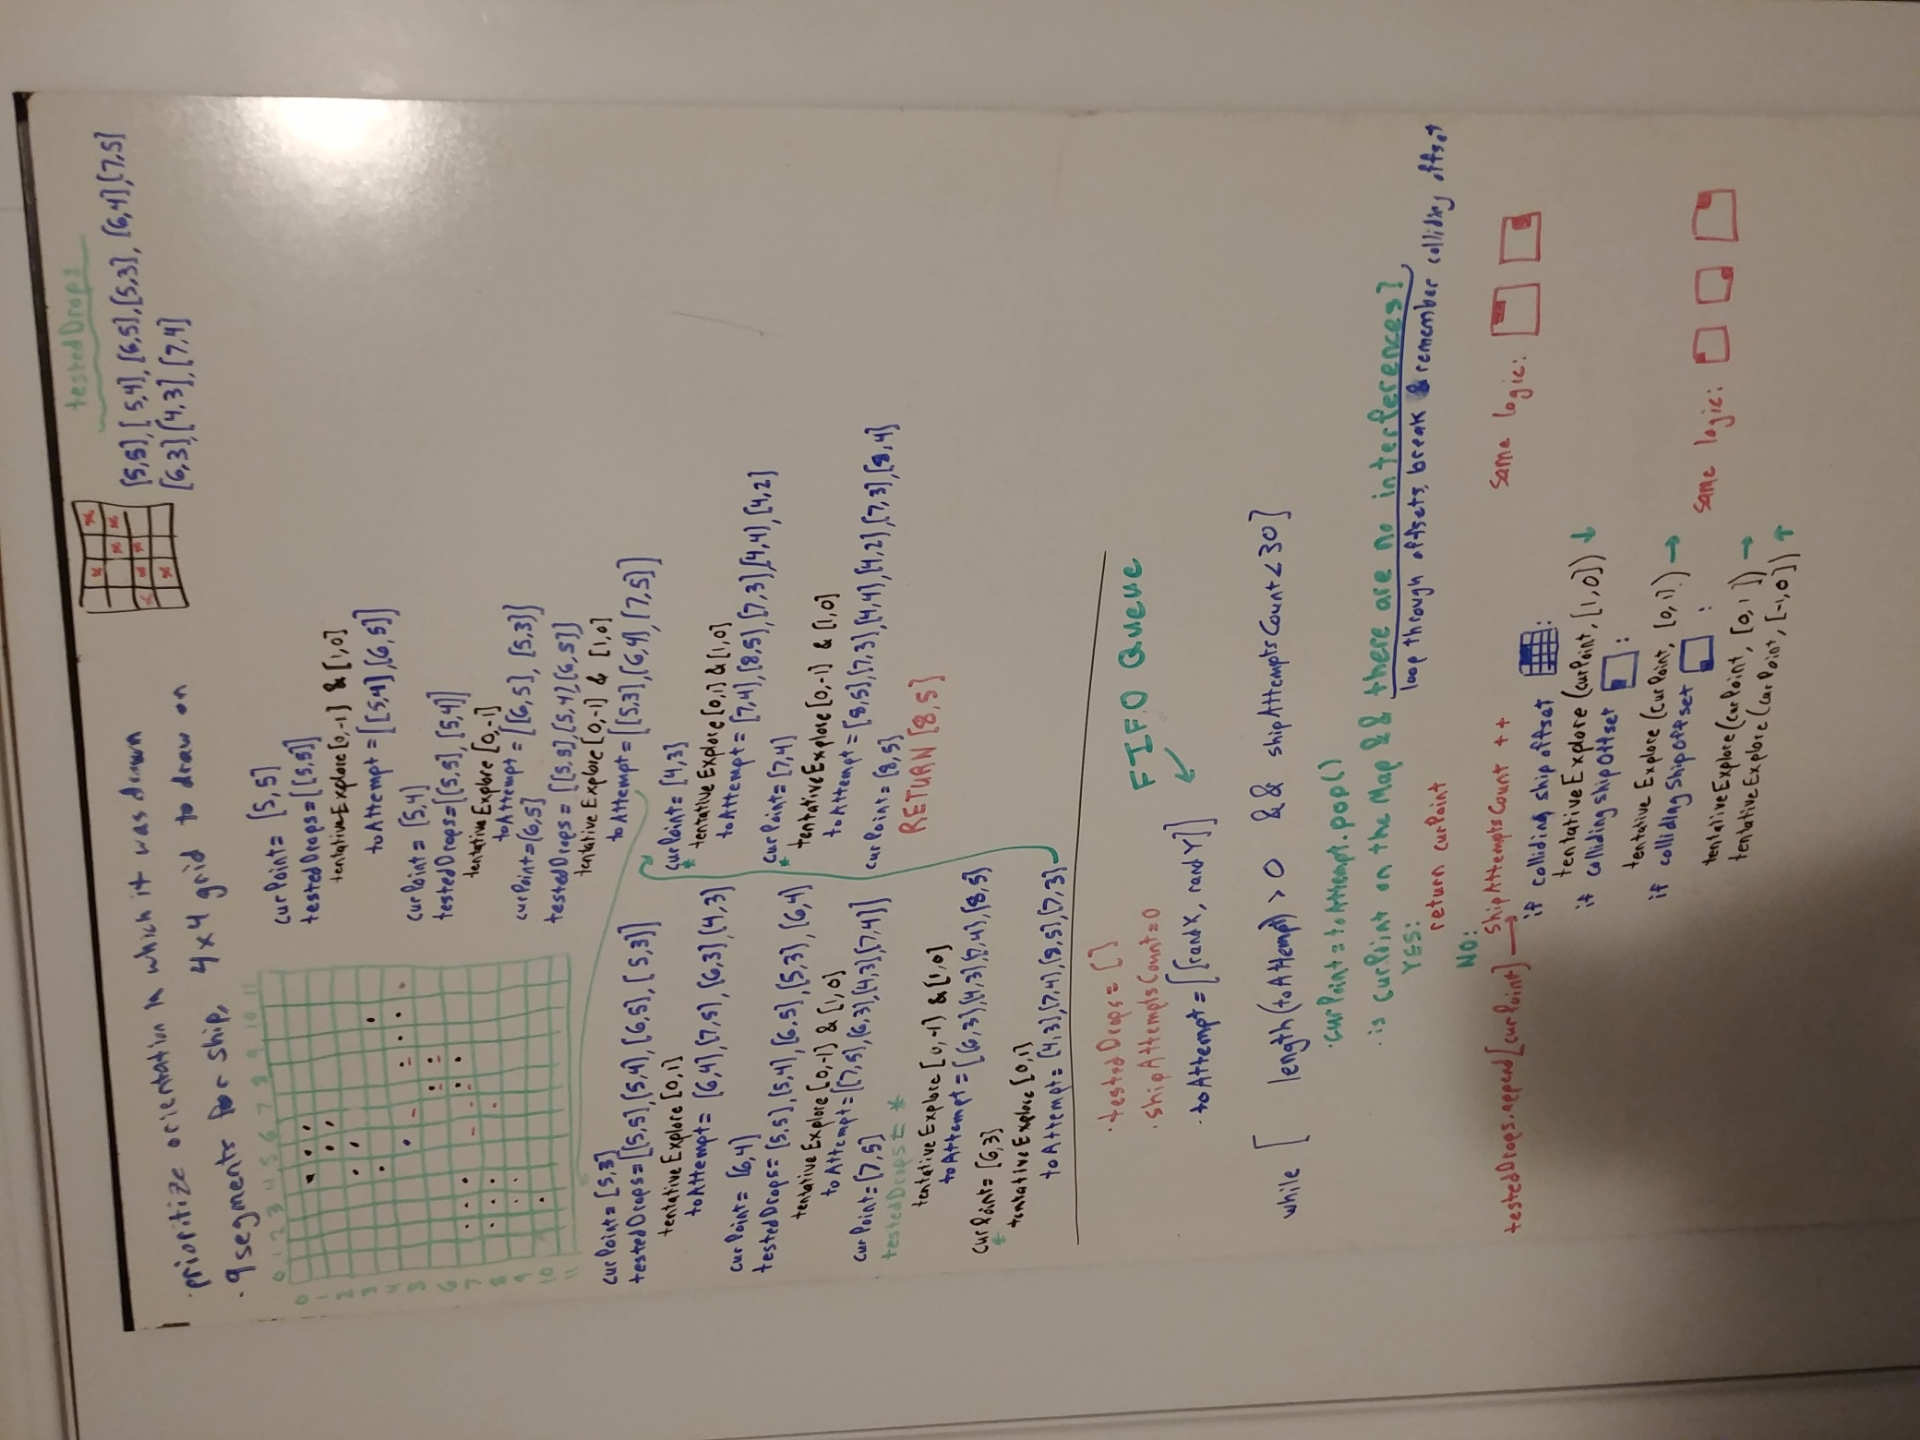 testedDrops
[5,5], [5,4], [6,5], [5,3], [6,4], [7,5]
[6,3], [4,3], [7,4]
· prioritize orientation in which it was drawn
· 9 segments for ship, 4x4 grid to draw on
0 1 2 3 4 5 6 7 8 9 10 11
0
1
2
3
4
5
6
7
8
9
10
11
curPoint= [5,5]
testedDrops=[[5,5]]
tentativeExplore[0,-1] & [1,0]
toAttempt=[[5,4],[6,5]]
curPoint= [5,4]
testedDrops=[[5,5], [5,4]]
tentative Explore [0,-1]
toAttempt=[[6,5], [5,3]]
curPoint=[6,5]
testedDrops= [[5,5],[5,4],[6,5]]
tentative Explore [0,-1] & [1,0]
toAttempt=[[5,3],[6,4],[7,5]]
curPoint= [5,3]
testedDrops=[[5,5],[5,4], [6,5], [5,3]]
tentative Explore [0,1]
toAttempt= [6,4],[7,5],[6,3],[4,3]
curPoint= [6,4]
testedDrops= [5,5],[5,4],[6,5],[5,3],[6,4]
tentative Explore [0,-1] & [1,0]
toAttempt=[[7,5],[6,3],[4,3],[7,4]]
curPoint=[7,5]
testedDrops= *
tentative Explore[0,-1] &[1,0]
toAttempt=[[6,3],[4,3],[7,4],[8,5]
curPoint= [6,3]
*
tentative Explore [0,1]
toAttempt= [4,3],[7,4],[8,5],[7,3]
curPoint= [4,3]
* tentativeExplore [0,1] &[1,0]
toAttempt= [7,4],[8,5],[7,3],[4,4],[4,2]
curPoint= [7,4]
* tentativeExplore[0,-1] & [1,0]
toAttempt=[8,5],[7,3],[4,4],[4,2],[7,3],[8,4]
curPoint= [8,5]
RETURN [8,5]
· testedDrops= []
· shipAttemptsCount=0
· toAttempt=[[randX, randY]]
FIFO Queue
while [ length(toAttempt) > 0 && shipAttemptsCount<30]
· curPoint=toAttempt.pop()
· is curPoint on the Map && there are no interferences?
loop through offsets, break & remember colliding offset
YES:
return curPoint
NO:
testedDrops.append[curPoint] → shipAttemptsCount ++
if colliding ship offset :
tentativeExplore (curPoint, [1,0]) ↓
if collidingshipOffset :
tentative Explore (curPoint, [0,1]) →
if colliding ShipOffset :
tentativeExplore(curPoint, [0,1]) →
tentativeExplore(curPoint, [-1,0]) ↑
same logic:
same logic: